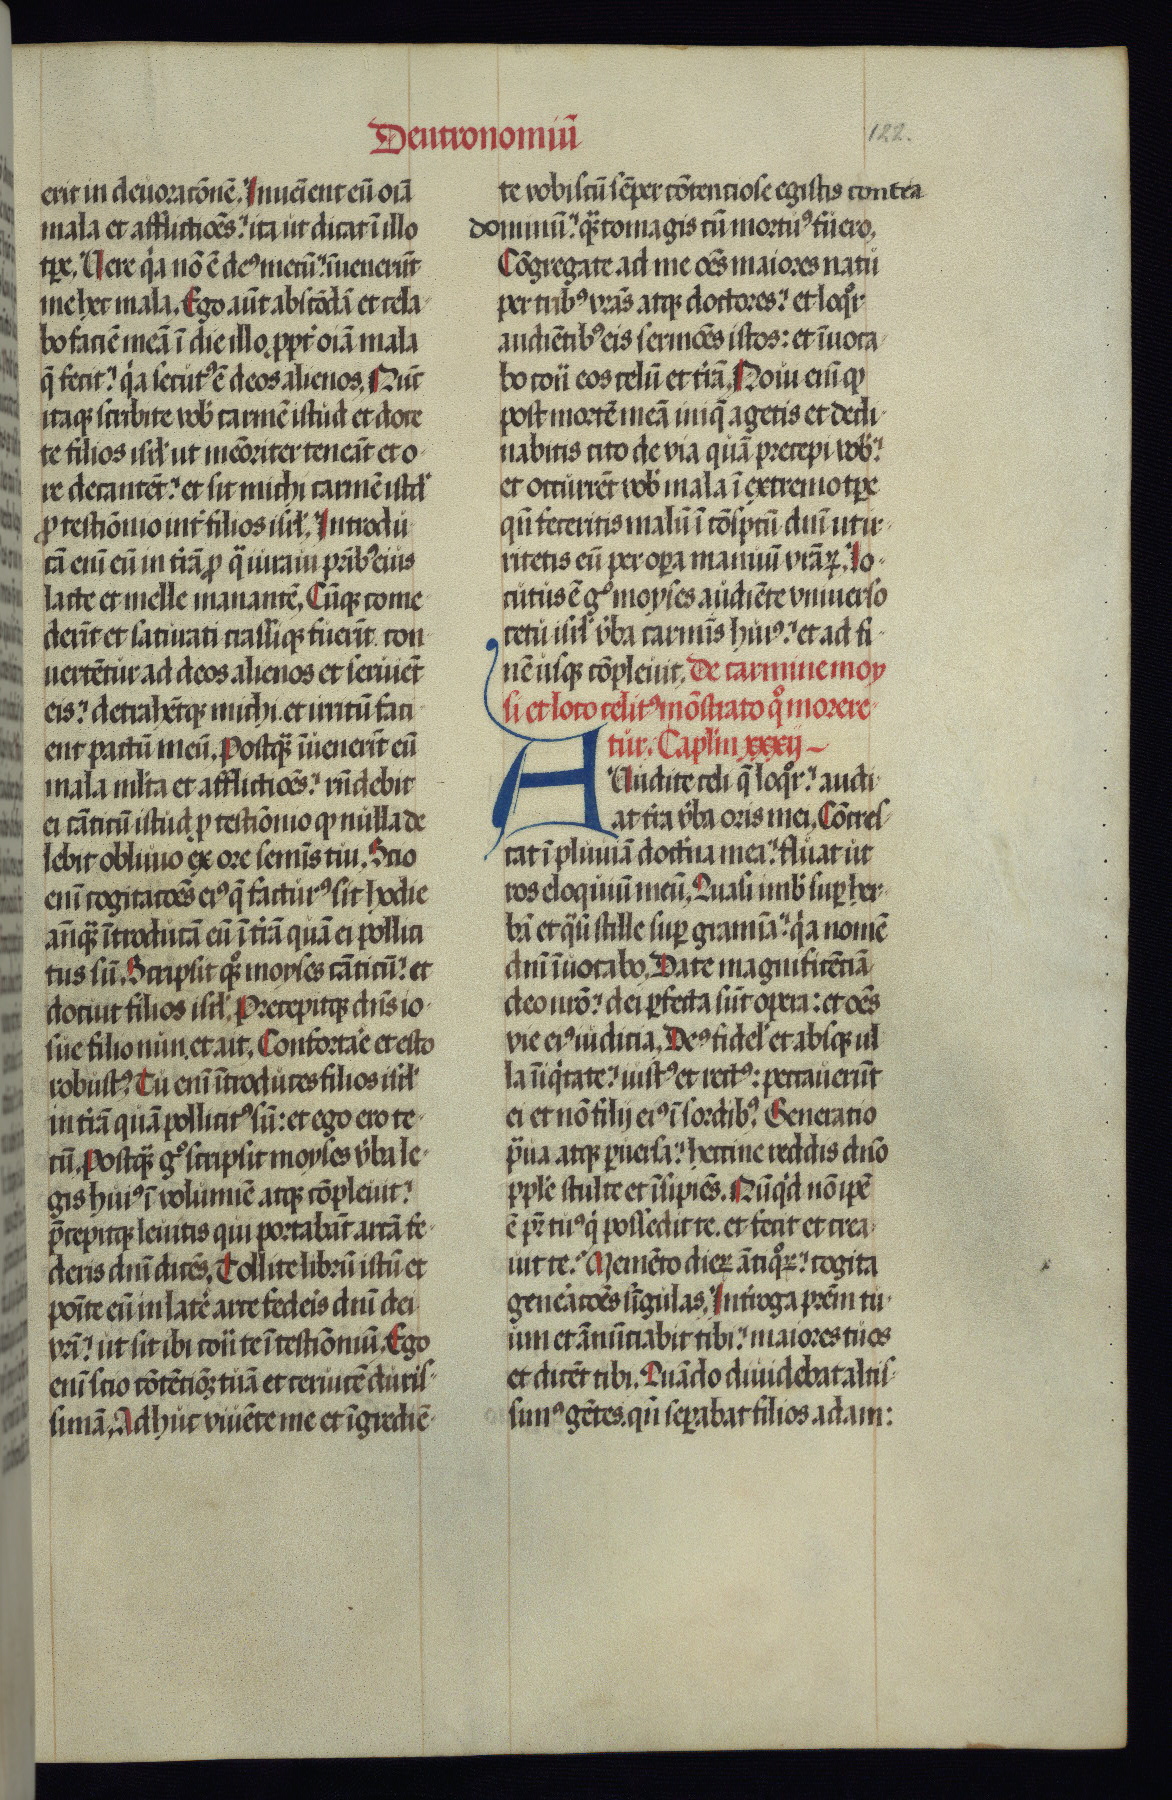 Deutronomiū
122.
erit in deuoratōnē. Inueiēnt eū oīa
mala et afflictiōēs? ita ut dicat ī illo
tp̄e. Uere q̇a nō ē de⁹ mecū? īuenerūt
me hec mala. Ego aūt abscōdā et cela
bo faciē meā ī die illo ꝓpt̓ oīa mala
q̄ fecit? q̇a secut⁹ ē deos alienos. Nūc
itaqꝫ scribite vob̓ carmē istud et doce
te filios isrl̓ ut meōriter teneāt et o-
re decantēt? et sit michi carmē istd̓
ꝓ testiōnio int̓ filios isrl̓. Introdu
cā enī eū in t̓rā ꝓ q̄ iuraui pr̄ib⁹ eius
lacte et melle manantē. Cūqꝫ come
derīt et saturati crassiqꝫ fuerīt con
uertētur ad deos alienos et seruiēt
eis? detrahētqꝫ michi et irritū faci
ent pactū meū. Postqꝫ̄ īuenerīt eū
mala ml̓ta et afflictiōēs? rn̄debit
ei cāticū istud ꝓ testiōnio qꝫ nulla de
lebit obliuio ex ore semīs tui. Scio
enī cogitacōēs ei⁹ q̄ factur⁹ sit hodie
an̄qꝫ̄ ītroducā eū ī t̓rā quā ei pollici
tus sū. Scripsit g̊ moyses cāticū? et
docuit filios isrl̓. Precepitqꝫ dn̄s io-
sue filio nun et ait. Confortāe et esto
robust⁹? Tu enī ītroduces filios isrl̓
in t̓rā quā pollicit⁹ sū: et ego ero te
cū. Postqꝫ̄ g̊ scripsit moyses v̓ba le-
gis hui⁹ ī volumiē atqꝫ cōpleuit?
p̄cepitqꝫ leuitis qui portabāt arcā fe-
deris dn̄i dicēs. Tollite librū istū et
poīte eū in lat̓e arce fedeis dn̄i dei
vr̄i? ut sit ibi cōt̄ te ī testiōniū. Ego
enī scio cōtētiōꝫ tuā et ceruicē duris-
simā. Adhuc viuēte me et īgrediē-
te vobiscū sēper cōtenciose egistis contra
dominū? qꝫ̄to magis cū mortu⁹ fuero.
Cōgregate ad me oēs maiores natu
per trib⁹ vr̄as atqꝫ doctores? et loqͦr
audiētib⁹ eis sermōēs istos: et īuoca-
bo cōt̄ eos celū et t̓rā. Noui enī qꝫ
post mortē meā iniq̄ agetis et decli-
nabitis cito de via quā precepi vob̓?
et occurrēt vob̓ mala ī extremo tp̄e
qn̄ feceritis malū ī cōsp̄tū dn̄i ut ir-
ritetis eū per oꝑa manuū vr̄aꝝ. Lo-
cutus ē g̊ moyses audiēte vniuerso
cetu isrl̓ v̓ba carmīs hui⁹? et ad fi-
nē usqꝫ cōpleuit. De carmine moy
si et loco celit⁹ mōstrato qͦ morere-
tur. Caplm̄ xxxij
Audite celi q̄ loqͦr? audi-
at t̓ra v̓ba oris mei. Cōcres-
cat ī pluuiā doctrīa mea? fluat ut
ros eloquiū meū. Quasi imb̓ suꝑ her-
bā et q̄si stille suꝑ gramīa? q̇a nomē
dn̄i īuocabo. Date magnificētiā
deo nr̄o? dei ꝑfecta sūt opera: et oēs
vie ei⁹ iudicia. De⁹ fidel̓ et absqꝫ ul
la īiq̇tate? iust⁹ et rect⁹: peccauerūt
ei et nō filij ei⁹ ī sordib⁹. Generatio
p̄ua atqꝫ ꝑuersa? heccine reddis dn̄o
pple̓ stulte et īsipiēs. Nūq̇d nō ipē
ē pr̄ tu⁹ q̇ possedit te. et fecit et crea
uit te? Memēto dieꝝ ātiqͦꝝ? cogita
genēacōēs sīgulas. Int̓roga prēm tu-
um et ānūciabit tibi? maiores tuos
et dicēt tibi. Quādo diuidebat altis-
sim⁹ gētes. qn̄ seꝑabat filios adam: